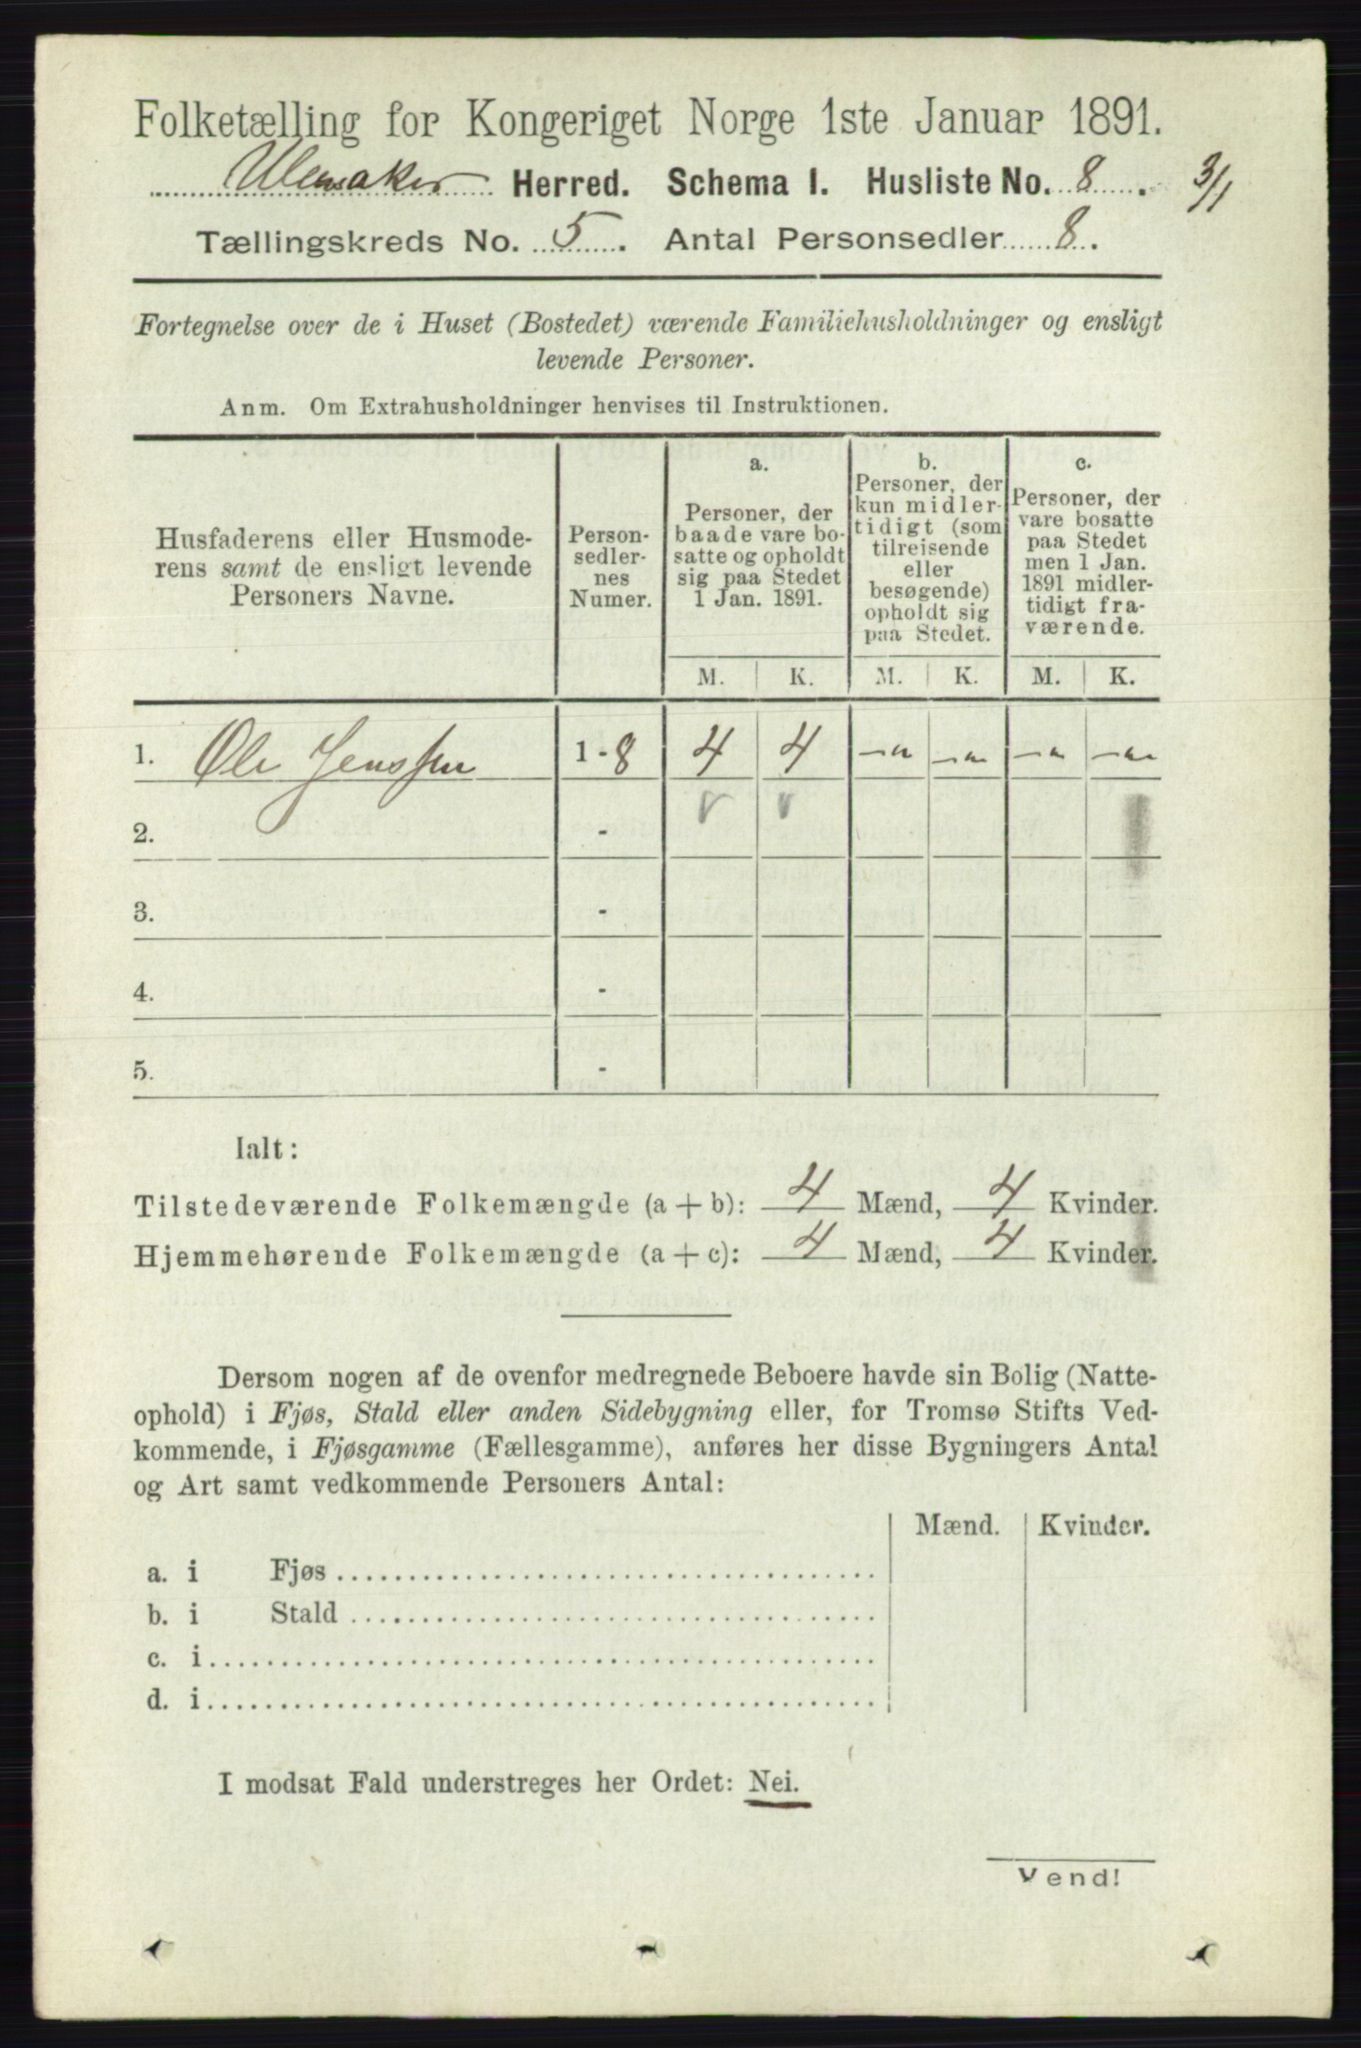 Folketælling for Kongeriget Norge 1ste Januar 1891.
Ulensaker Herred. Schema I. Husliste No. 8. 3/1
Tællingskreds No. 5. Antal Personsedler 8.
Fortegnelse over de i Huset (Bostedet) værende Familiehusholdninger og ensligt
levende Personer.
Anm. Om Extrahusholdninger henvises til Instruktionen.
Husfaderens eller Husmode-
rens samt de ensligt levende
Personers Navne.
Person-
sedler-
nes
Numer.
a.
Personer, der
baade vare bo-
satte og opholdt
sig paa Stedet
1 Jan. 1891.
b.
Personer, der
kun midler-
tidigt (som
tilreisende
eller
besøgende)
opholdt sig
paa Stedet.
c.
Personer, der
vare bosatte
paa Stedet
men 1 Jan.
1891 midler-
tidigt fra-
værende.
M. K. M. K. M. K.
1. Ole Jenssen 1 - 8 4 4 —"— —"— —"— —"—
2. -
3. -
4. -
5. -
Ialt:
Tilstedeværende Folkemængde (a + b): 4 Mænd, 4 Kvinder.
Hjemmehørende Folkemængde (a + c): 4 Mænd, 4 Kvinder.
Dersom nogen af de ovenfor medregnede Beboere havde sin Bolig (Natte-
ophold) i Fjøs, Stald eller anden Sidebygning eller, for Tromsø Stifts Ved-
kommende, i Fjøsgamme (Fællesgamme), anføres her disse Bygningers Antal
og Art samt vedkommende Personers Antal:
Mænd. Kvinder.
a. i Fjøs
b. i Stald
c. i
d. i
I modsat Fald understreges her Ordet: Nei.
Vend!